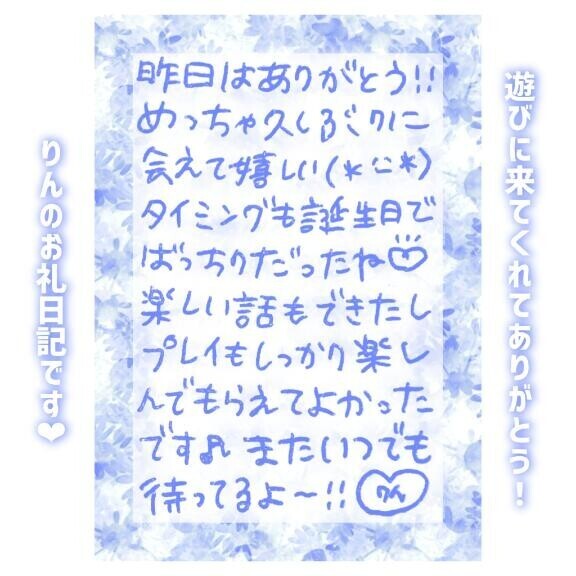 遊びに来てくれてありがとう！
昨日はありがとう!!
めっちゃ久しぶりに
会えて嬉しい(*ﾆ*)
タイミングも誕生日で
ばっちりだったね♡
楽しい話もできたし
プレイもしっかり楽し
んでもらえてよかった
です♪ またいつでも
待ってるよ〜!! りん
りんのお礼日記です❤